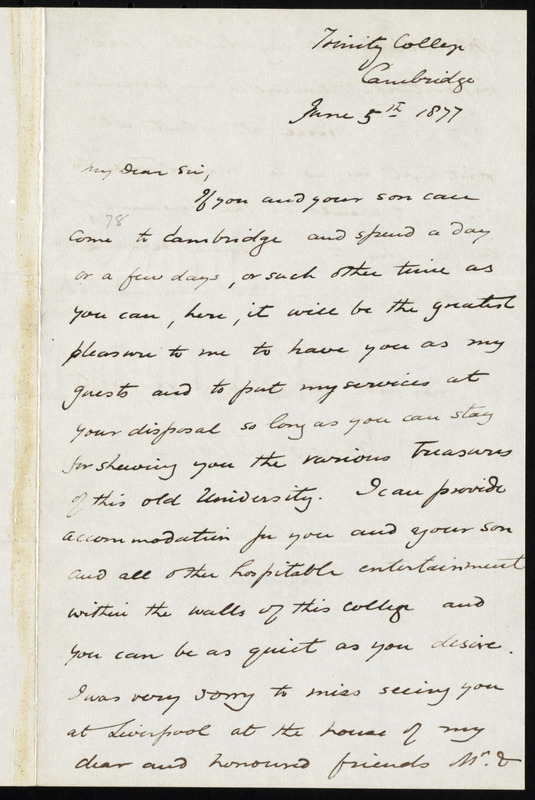 Trinity College
Cambridge
June 5th 1877
My Dear Sir,
If you and your son can
78
come to Cambridge and spend a day
or a few days, or such other time as
you can, here, it will be the greatest
pleasure to me to have you as my
guests and to put my services at
your disposal so long as you can stay
for shewing you the various Treasures
of this old University. I can provide
accommodation for you and your son
and all other hospitable entertainment
within the walls of this college and
you can be as quiet as you desire.
I was very sorry to miss seeing you
at Liverpool at the house of my
dear and honoured friends Mr. &